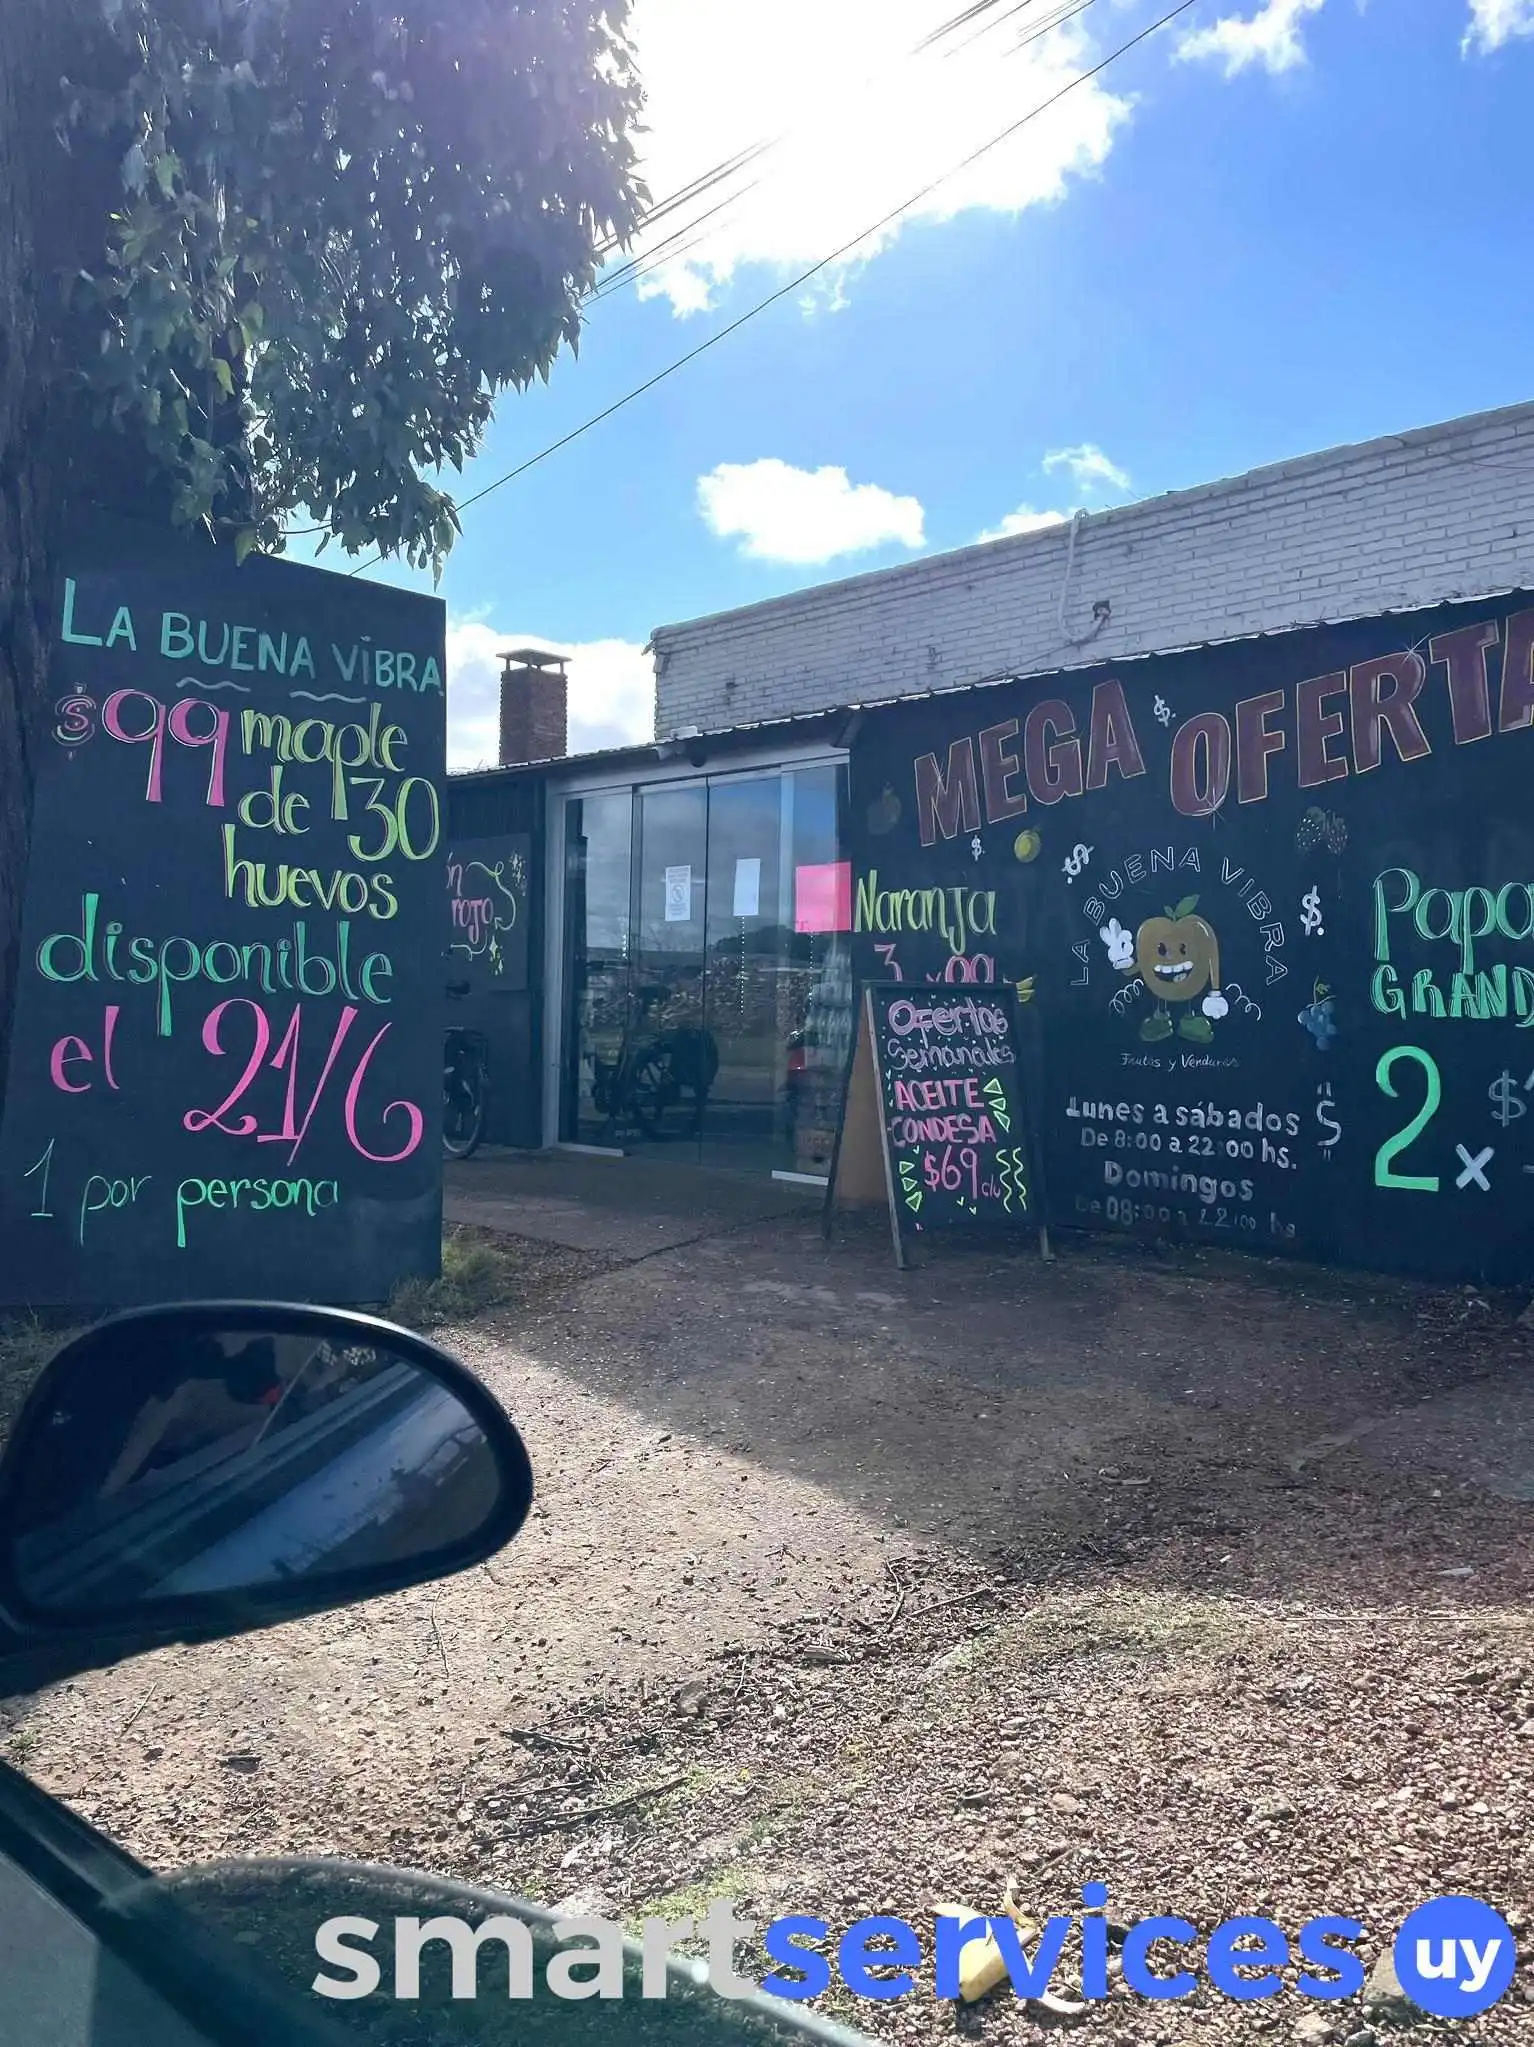 LA BUENA VIBRA
$99 maple
de 30
huevos
disponible
el 21/6
1 por persona
MEGA OFERTA
Naranja
Ofertas
Semanales
ACEITE
CONDESA
$69 c/u
LA BUENA VIBRA
Frutas y Verduras
Lunes a sábados
De 8:00 a 22:00 hs.
Domingos
De 08:00 a 22:00 hs
GRAND
2 x
smartservices uy